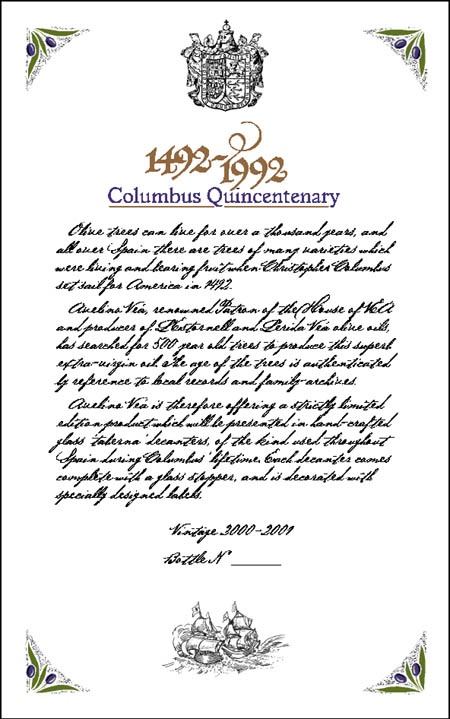 1492-1992
Columbus Quincentenary
Olive trees can live for over a thousand years, and
all over Spain there are trees of many varieties which
were living and bearing fruit when Christopher Columbus
set sail for America in 1492.
Avelino Veá, renowned Patron of the House of VEA
and producer of L'Estornell and Lérida Veá olive oils,
has searched for 500 year old trees to produce this superb
extra-virgin oil. The age of the trees is authenticated
by reference to local records and family archives.
Avelino Veá is therefore offering a strictly limited
edition product which will be presented in hand-crafted
glass 'taberna' decanters, of the kind used throughout
Spain during Columbus' lifetime. Each decanter comes
complete with a glass stopper, and is decorated with
specially designed labels.
Vintage 2000-2001
Bottle Nº